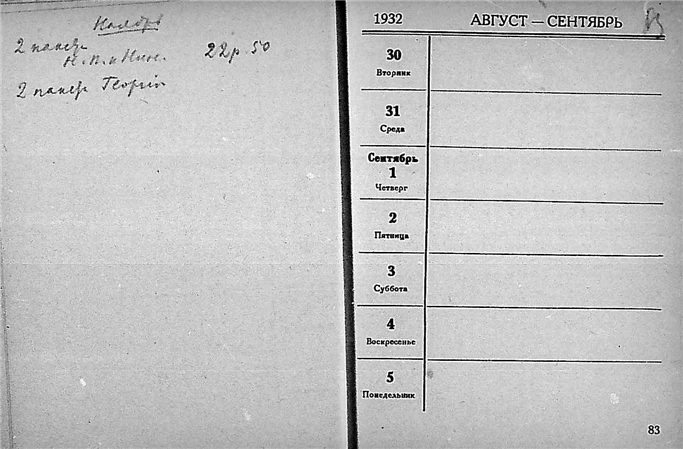 Ноябрь
2 22р. 50
Н. П. и
2
1932 АВГУСТ — СЕНТЯБРЬ
30
Вторник
31
Среда
Сентябрь
1
Четверг
2
Пятница
3
Суббота
4
Воскресенье
5
Понедельник
83